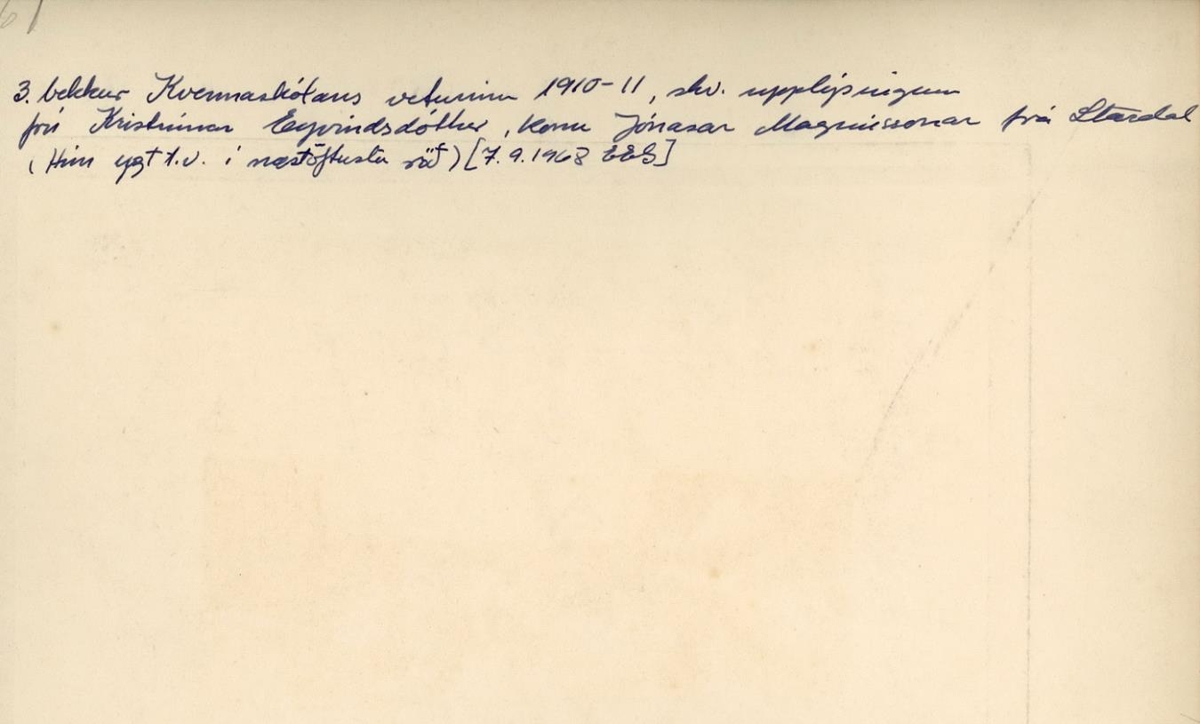 3. bekkur Kvennaskólans veturinn 1910-11, skv. upplýsingum
frú Kristrúnar Eyvindsdóttur, konu Jónasar Magnússonar frá Stardal
(Hún yzt t.v. í næstöftustu röð) [7.9.1968 EEG]